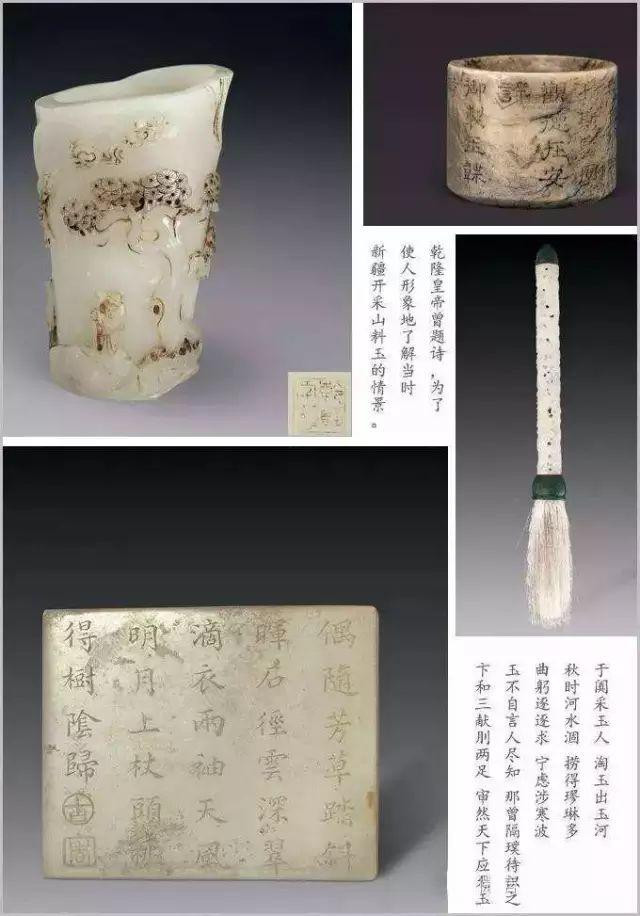 觀德在安
御製玉韘
乾隆皇帝曾题诗,为了
使人形象地了解当时
新疆开采山料玉的情景。
偶隨芳草踏斜
暉石徑雲深翠
滴衣兩袖天風
明月上杖頭挑
得樹陰歸
于阗采玉人 淘玉出玉河
秋时河水涸 捞得璆琳多
曲躬逐逐求 宁虑涉寒波
玉不自言人尽知 那曾隔璞待识之
卞和三献刖两足 审然天下应玉